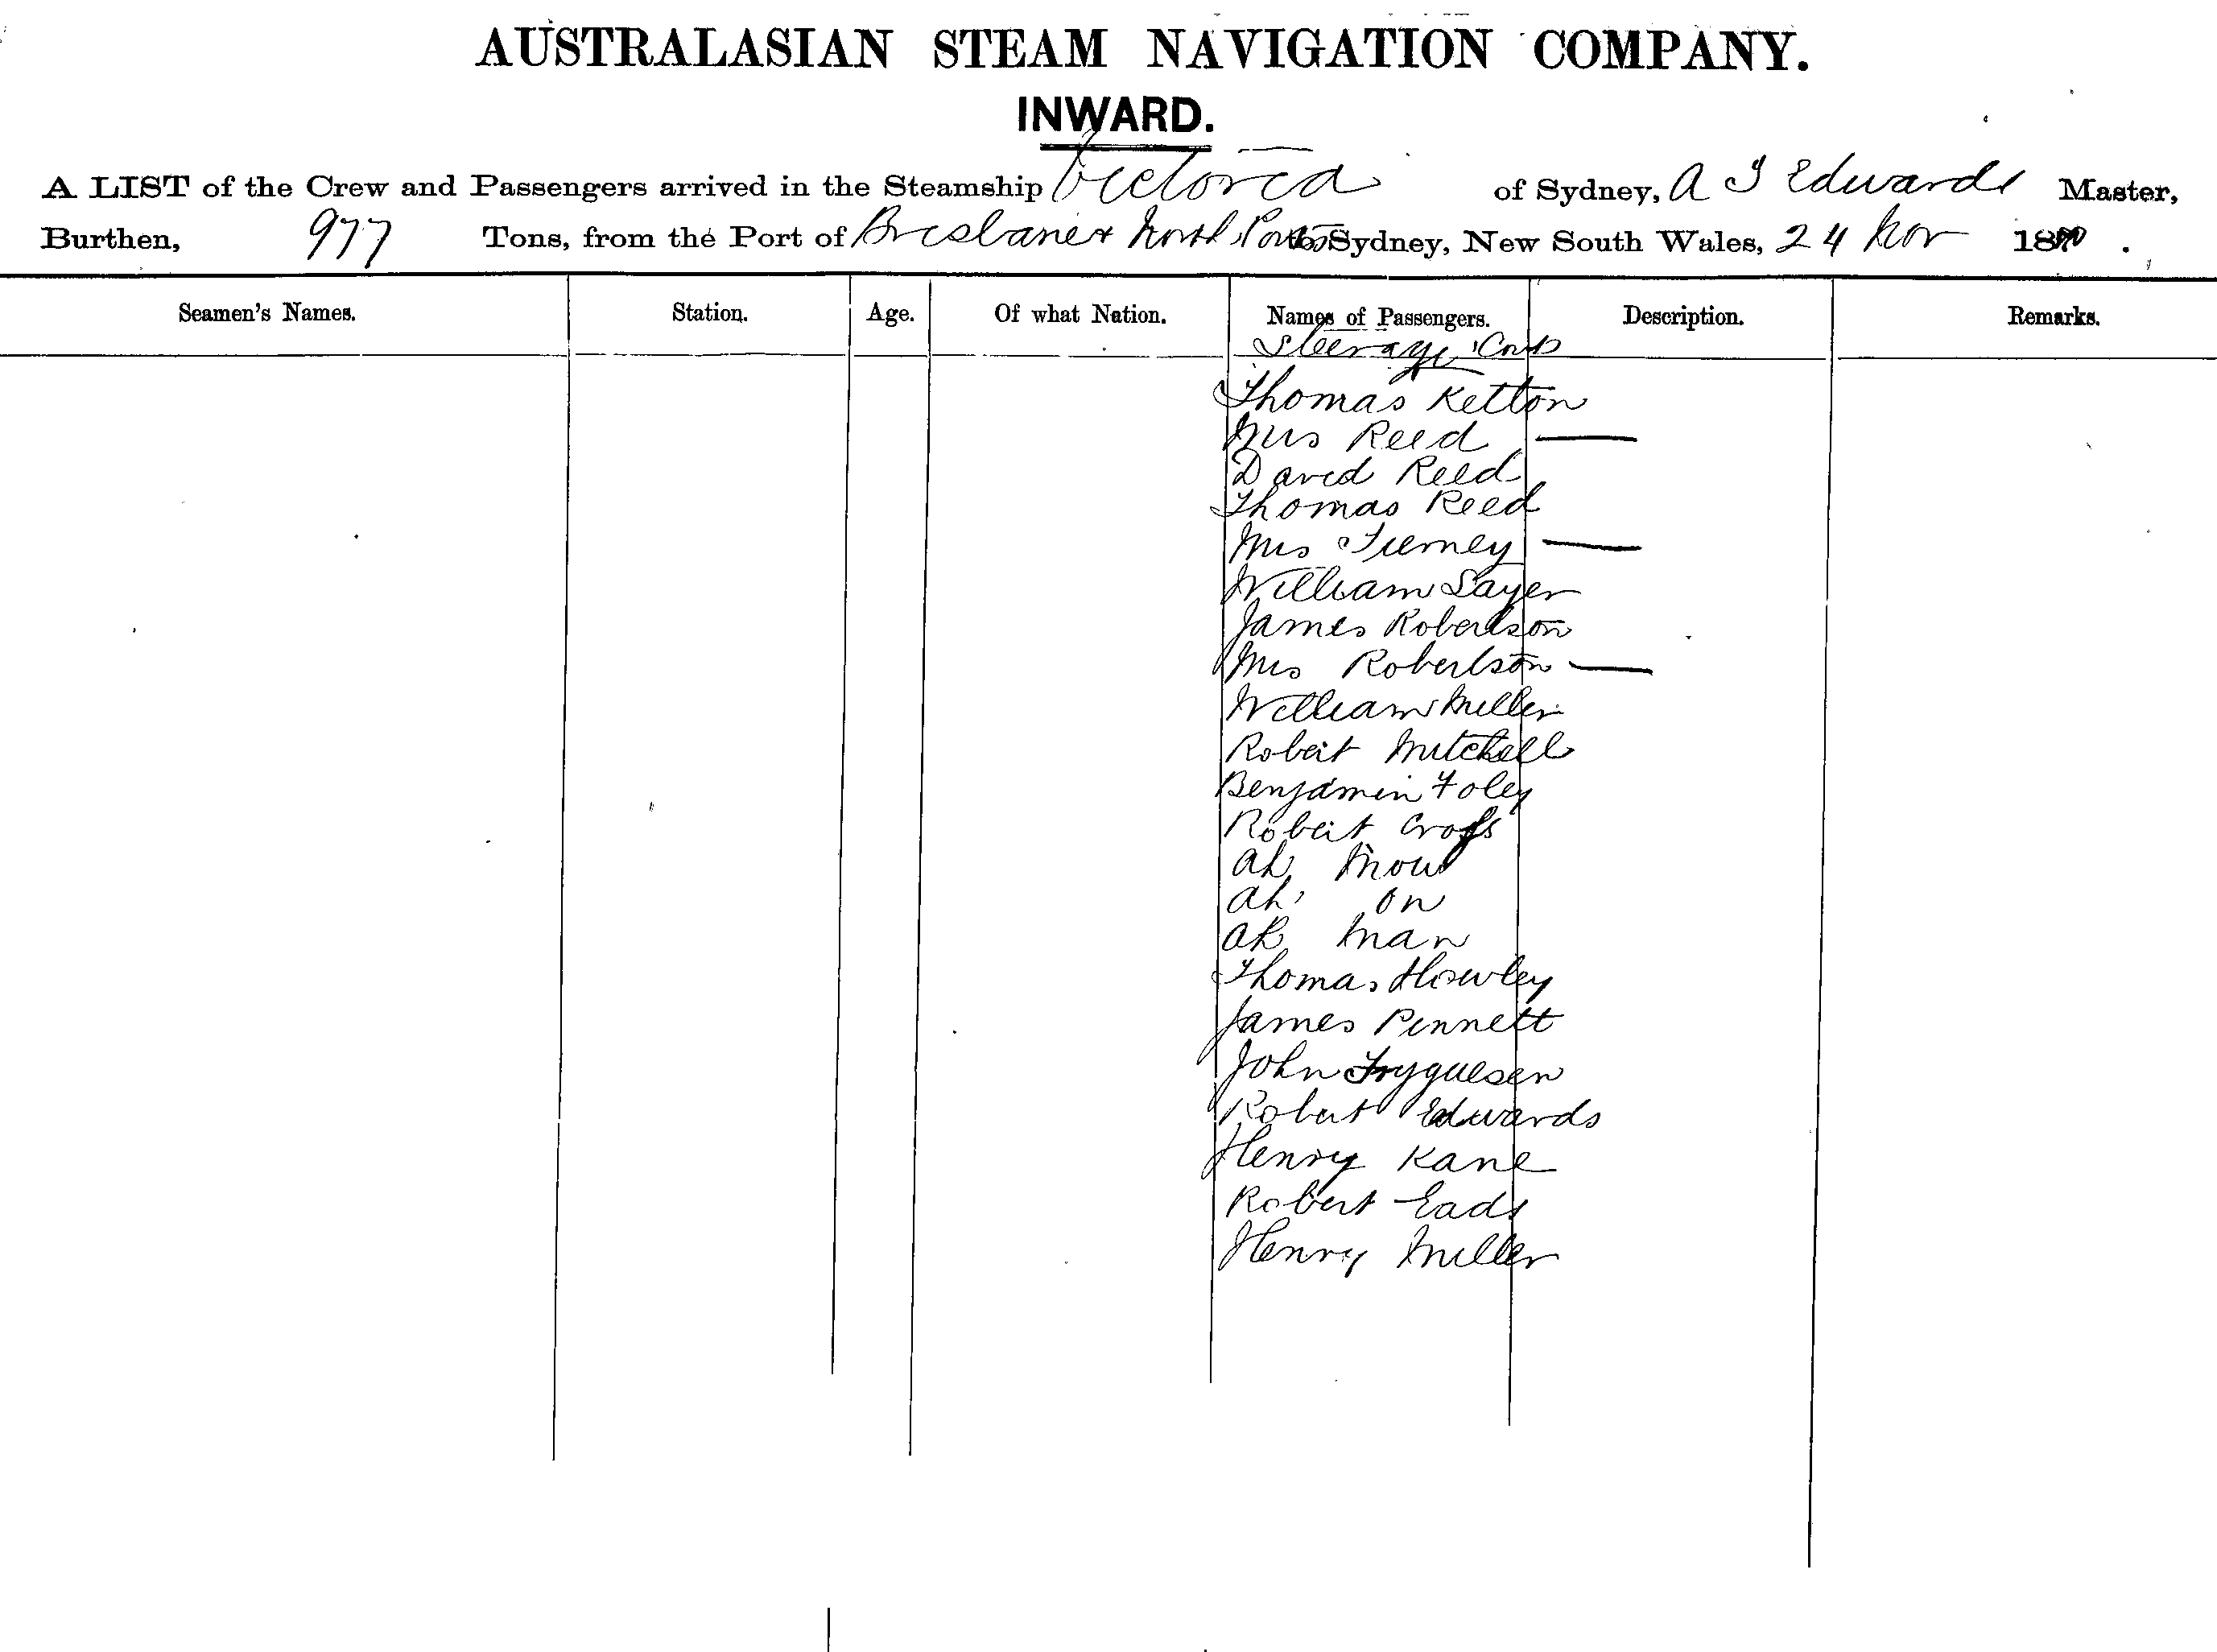 AUSTRALASIAN STEAM NAVIGATION COMPANY.
INWARD.
A LIST of the Crew and Passengers arrived in the Steamship Victoria of Sydney, A T Edwards Master,
Burthen, 977 Tons, from the Port of Brisbane & North Ports to Sydney, New South Wales, 24 Nov 18
Seamen's Names. Station. Age. Of what Nation. Names of Passengers. Description. Remarks.
Steerage
Thomas Ketton
Mrs Reed —
David Reed
Thomas Reed
Mrs Tierney —
William Sayer
James Robertson
Mrs Robertson —
William Miller
Robert Mitchell
Benjamin Foley
Robert
Ah Mow
Ah On
Ah Man
Thomas Howley
James Pennett
John
Robert Edwards
Henry Kane
Robert Eads
Henry Miller